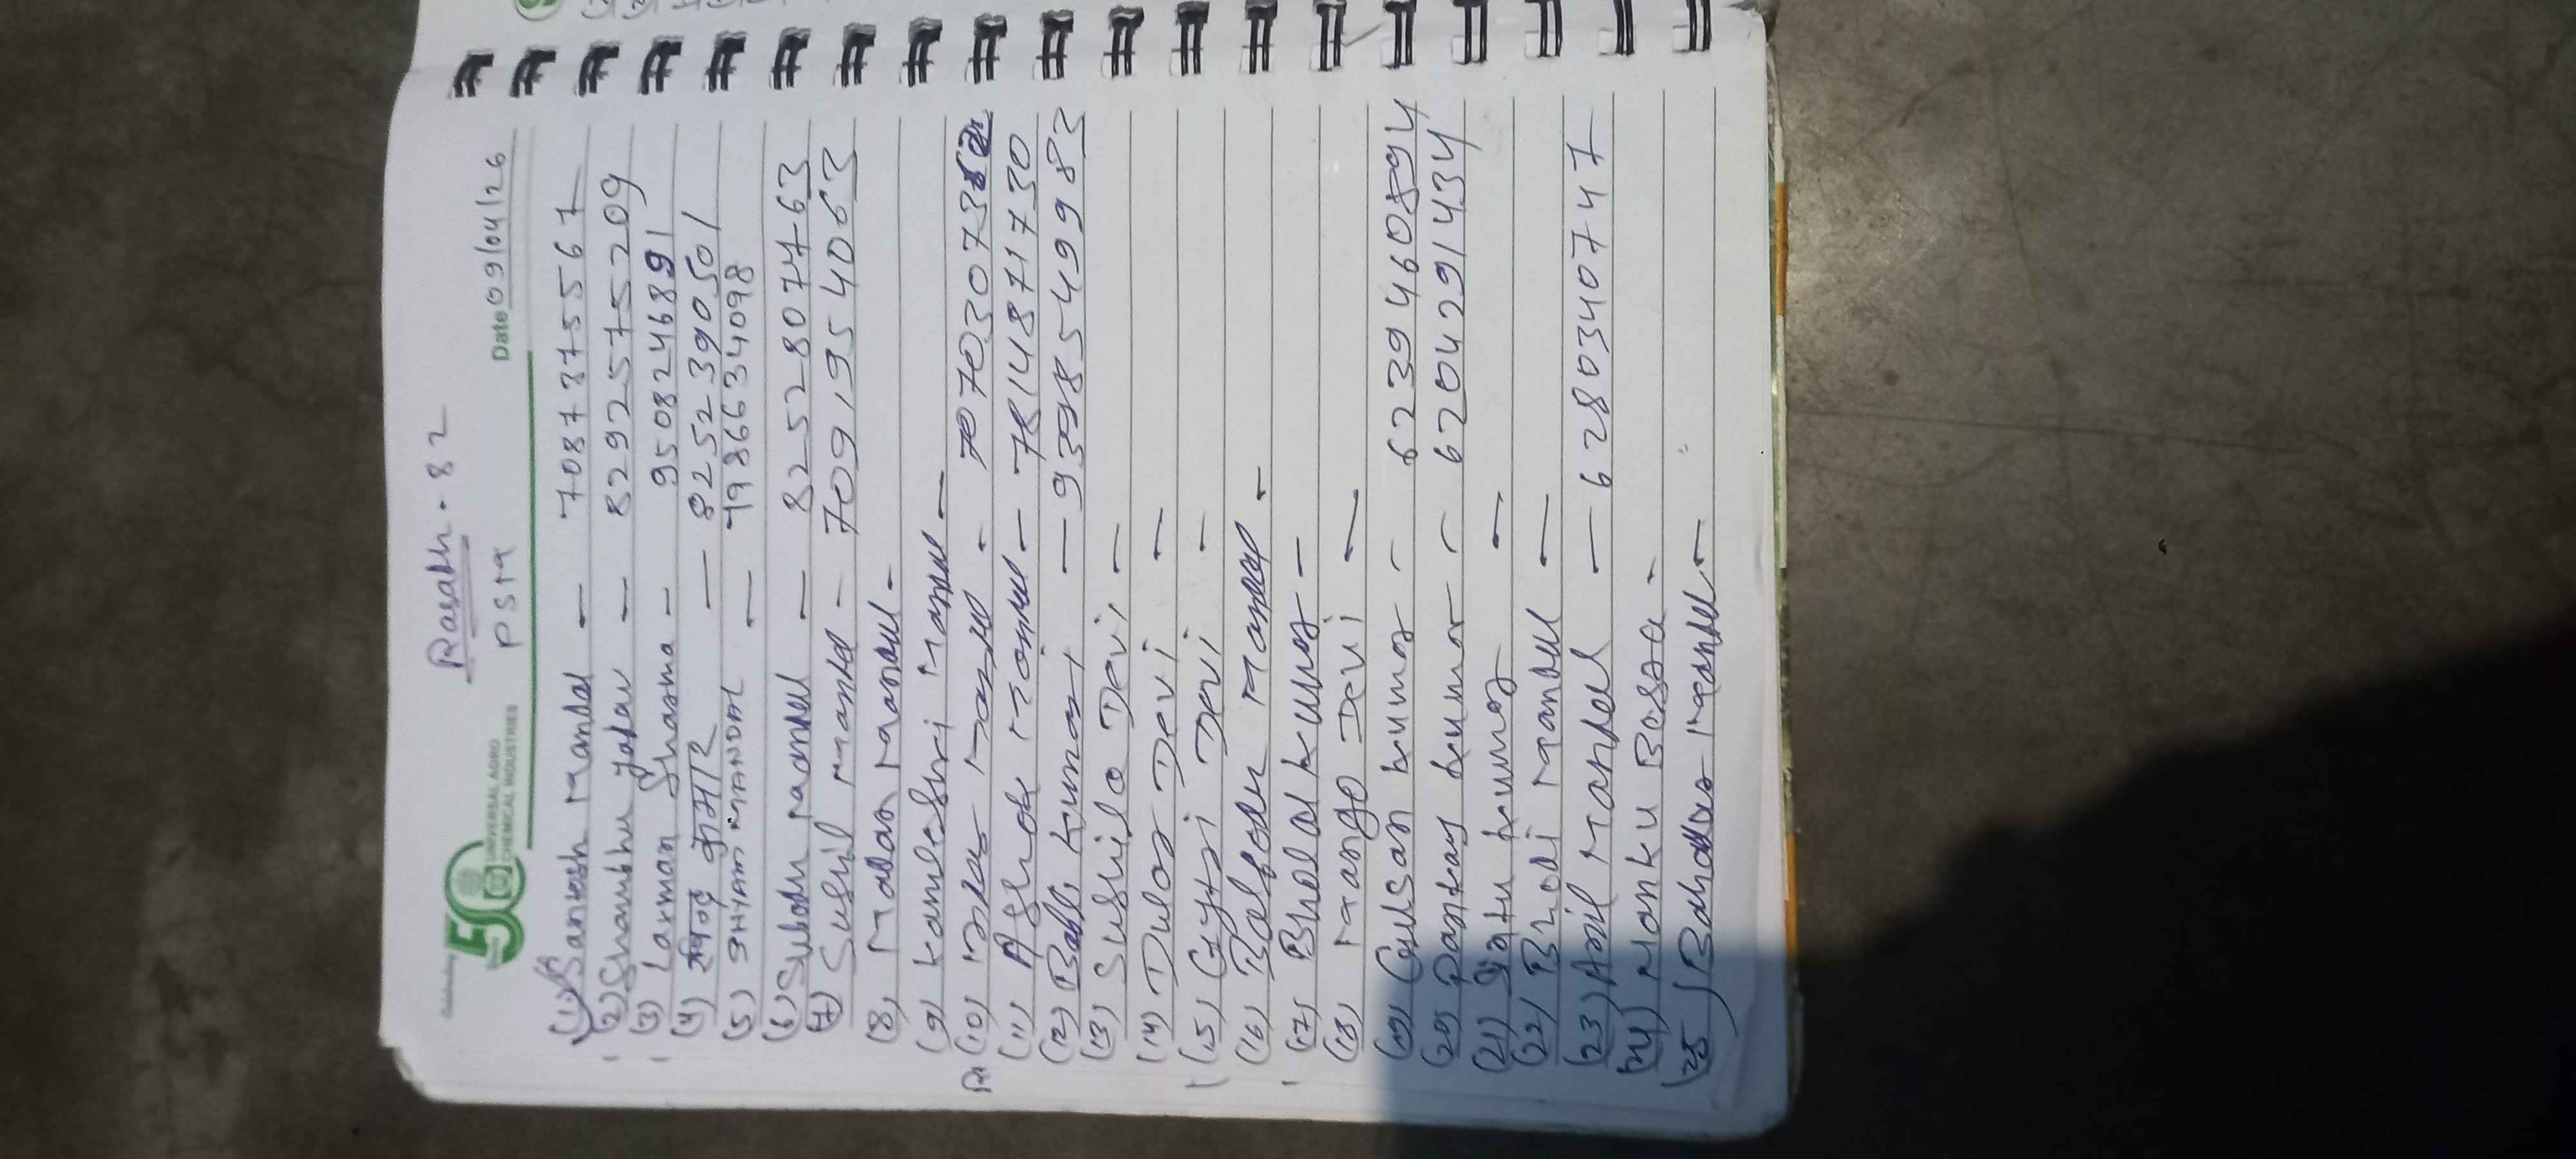 Celebrating
50
UNIVERSAL AGRO
CHEMICAL INDUSTRIES
Rasalh - 82
PSIA
Date 09/04/26
(1) Sanvesh Mandal — 7087375567
(2) Shambhu yadav — 8292575209
(3) Laxman Sharma - 9508246891
(4) कुमार — 8252390501
(5) SHYAM MANDAL — 7986634098
(6) Subodh Mandal — 8252807763
(7) Sushil Mandal - 7091954063
(8) Madan Mandal -
(9) Kamleshri Mandal —
(10) Mandal - 7070307362
(11) Ashok Mandal - 7814871730
(12) Bable Kumari — 9398549983
(13) Sushila Devi —
(14) Dular Devi —
(15) Gytri Devi -
(16) Mandal -
(17) Bholal Kumar —
(18) Mango Devi —
(19) Gulsan Kumar - 6239460894
(20) Pankaj Kumar - 6204291434
(21) Kumar —
(22) Mandal —
(23) Anil Mandal — 6280340747
(24) Manku Besra -
(25) Bahadur Mandal —